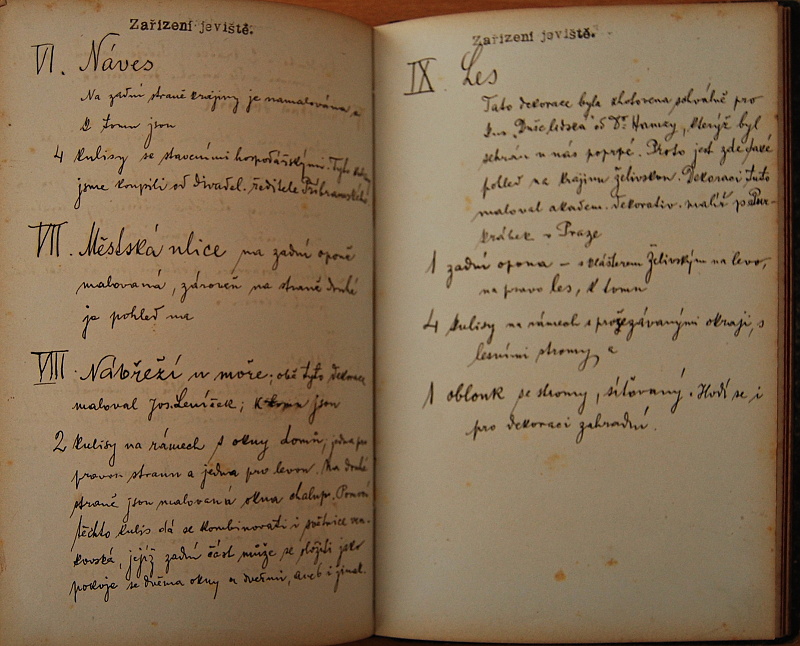 Zařízení jeviště.
VI. Náves
Na zadní straně krajiny je namalována a
k tomu jsou
4 kulisy se staveními hospodářskými. Tyto
jsme koupili od divadel. ředitele Příbramského
VII. Městská ulice na zadní oponě
malovaná, zároveň na straně druhé
je pohled na
VIII. Nábřeží u moře; obě tyto dekorace
maloval Jos. Leníček; k tomu jsou
2 kulisy na rámech s okny domů; jedna pro
pravou stranu a jedna pro levou. Na druhé
straně jsou malovaná okna chalup. Pomocí
těchto kulis dá se kombinovati i světnice ven-
kovská, jejíž zadní část může se složiti jako
pokoje se dvěma okny a dveřmi, aneb i jinak.
Zařízení jeviště.
IX Les
Tato dekorace byla zhotovena schválně pro
"Duše lidská" od Dr Hamzy, kterýž byl
sehrán u nás poprvé. Proto jest zde také
pohled na krajinu Želivskou. Dekoraci tuto
maloval akadem. dekorativ. malíř p. Pur-
krábek v Praze
1 zadní opona – s klášterem Želivským na levo,
na pravo les, k tomu
4 kulisy na rámech s prořezávanými okraji, s
lesními stromy, a
1 oblouk se stromy, síťovaný. Hodí se i
pro dekoraci zahradní.